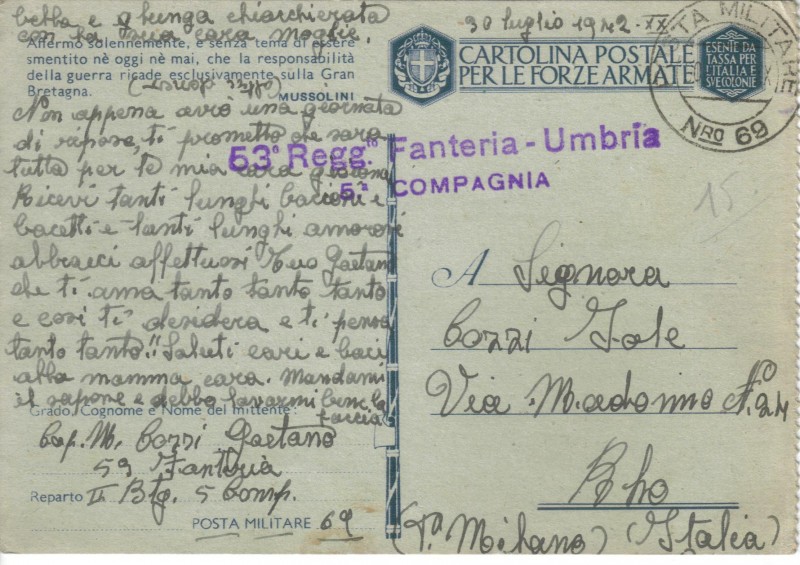 bella e lunga chiacchierata
con la sua cara moglie.
Affermo solennemente, e senza tema di essere
smentito nè oggi nè mai, che la responsabilità
della guerra ricade esclusivamente sulla Gran
Bretagna.
MUSSOLINI
Non appena avrò una giornata
di riposo, ti prometto che sarà
tutta per te mia cara
Ricevi tanti lunghi bacioni e
bacetti e tanti lunghi amorosi
abbracci affettuosi Tuo Gaetano
che ti ama tanto tanto tanto
e così ti desidera e ti pensa
tanto tanto!! Saluti cari e baci
alla mamma cara. Mandami
il sapone e debbo lavarmi bene la
faccia
Grado, Cognome e Nome del mittente:
Cap. M. Cozzi Gaetano
53 Fanteria
Reparto II Btg. 5 Comp.
POSTA MILITARE 69
30 luglio 1942-XX
CARTOLINA POSTALE
PER LE FORZE ARMATE
ESENTE DA
TASSA PER
L'ITALIA E
SVE COLONIE
POSTA MILITARE
NRO 69
53° Regg.to Fanteria - Umbria
5.a COMPAGNIA
15
A Signora
Cozzi Iole
Via Madonna N. 24
Rho
(Pa Milano) (Italia)